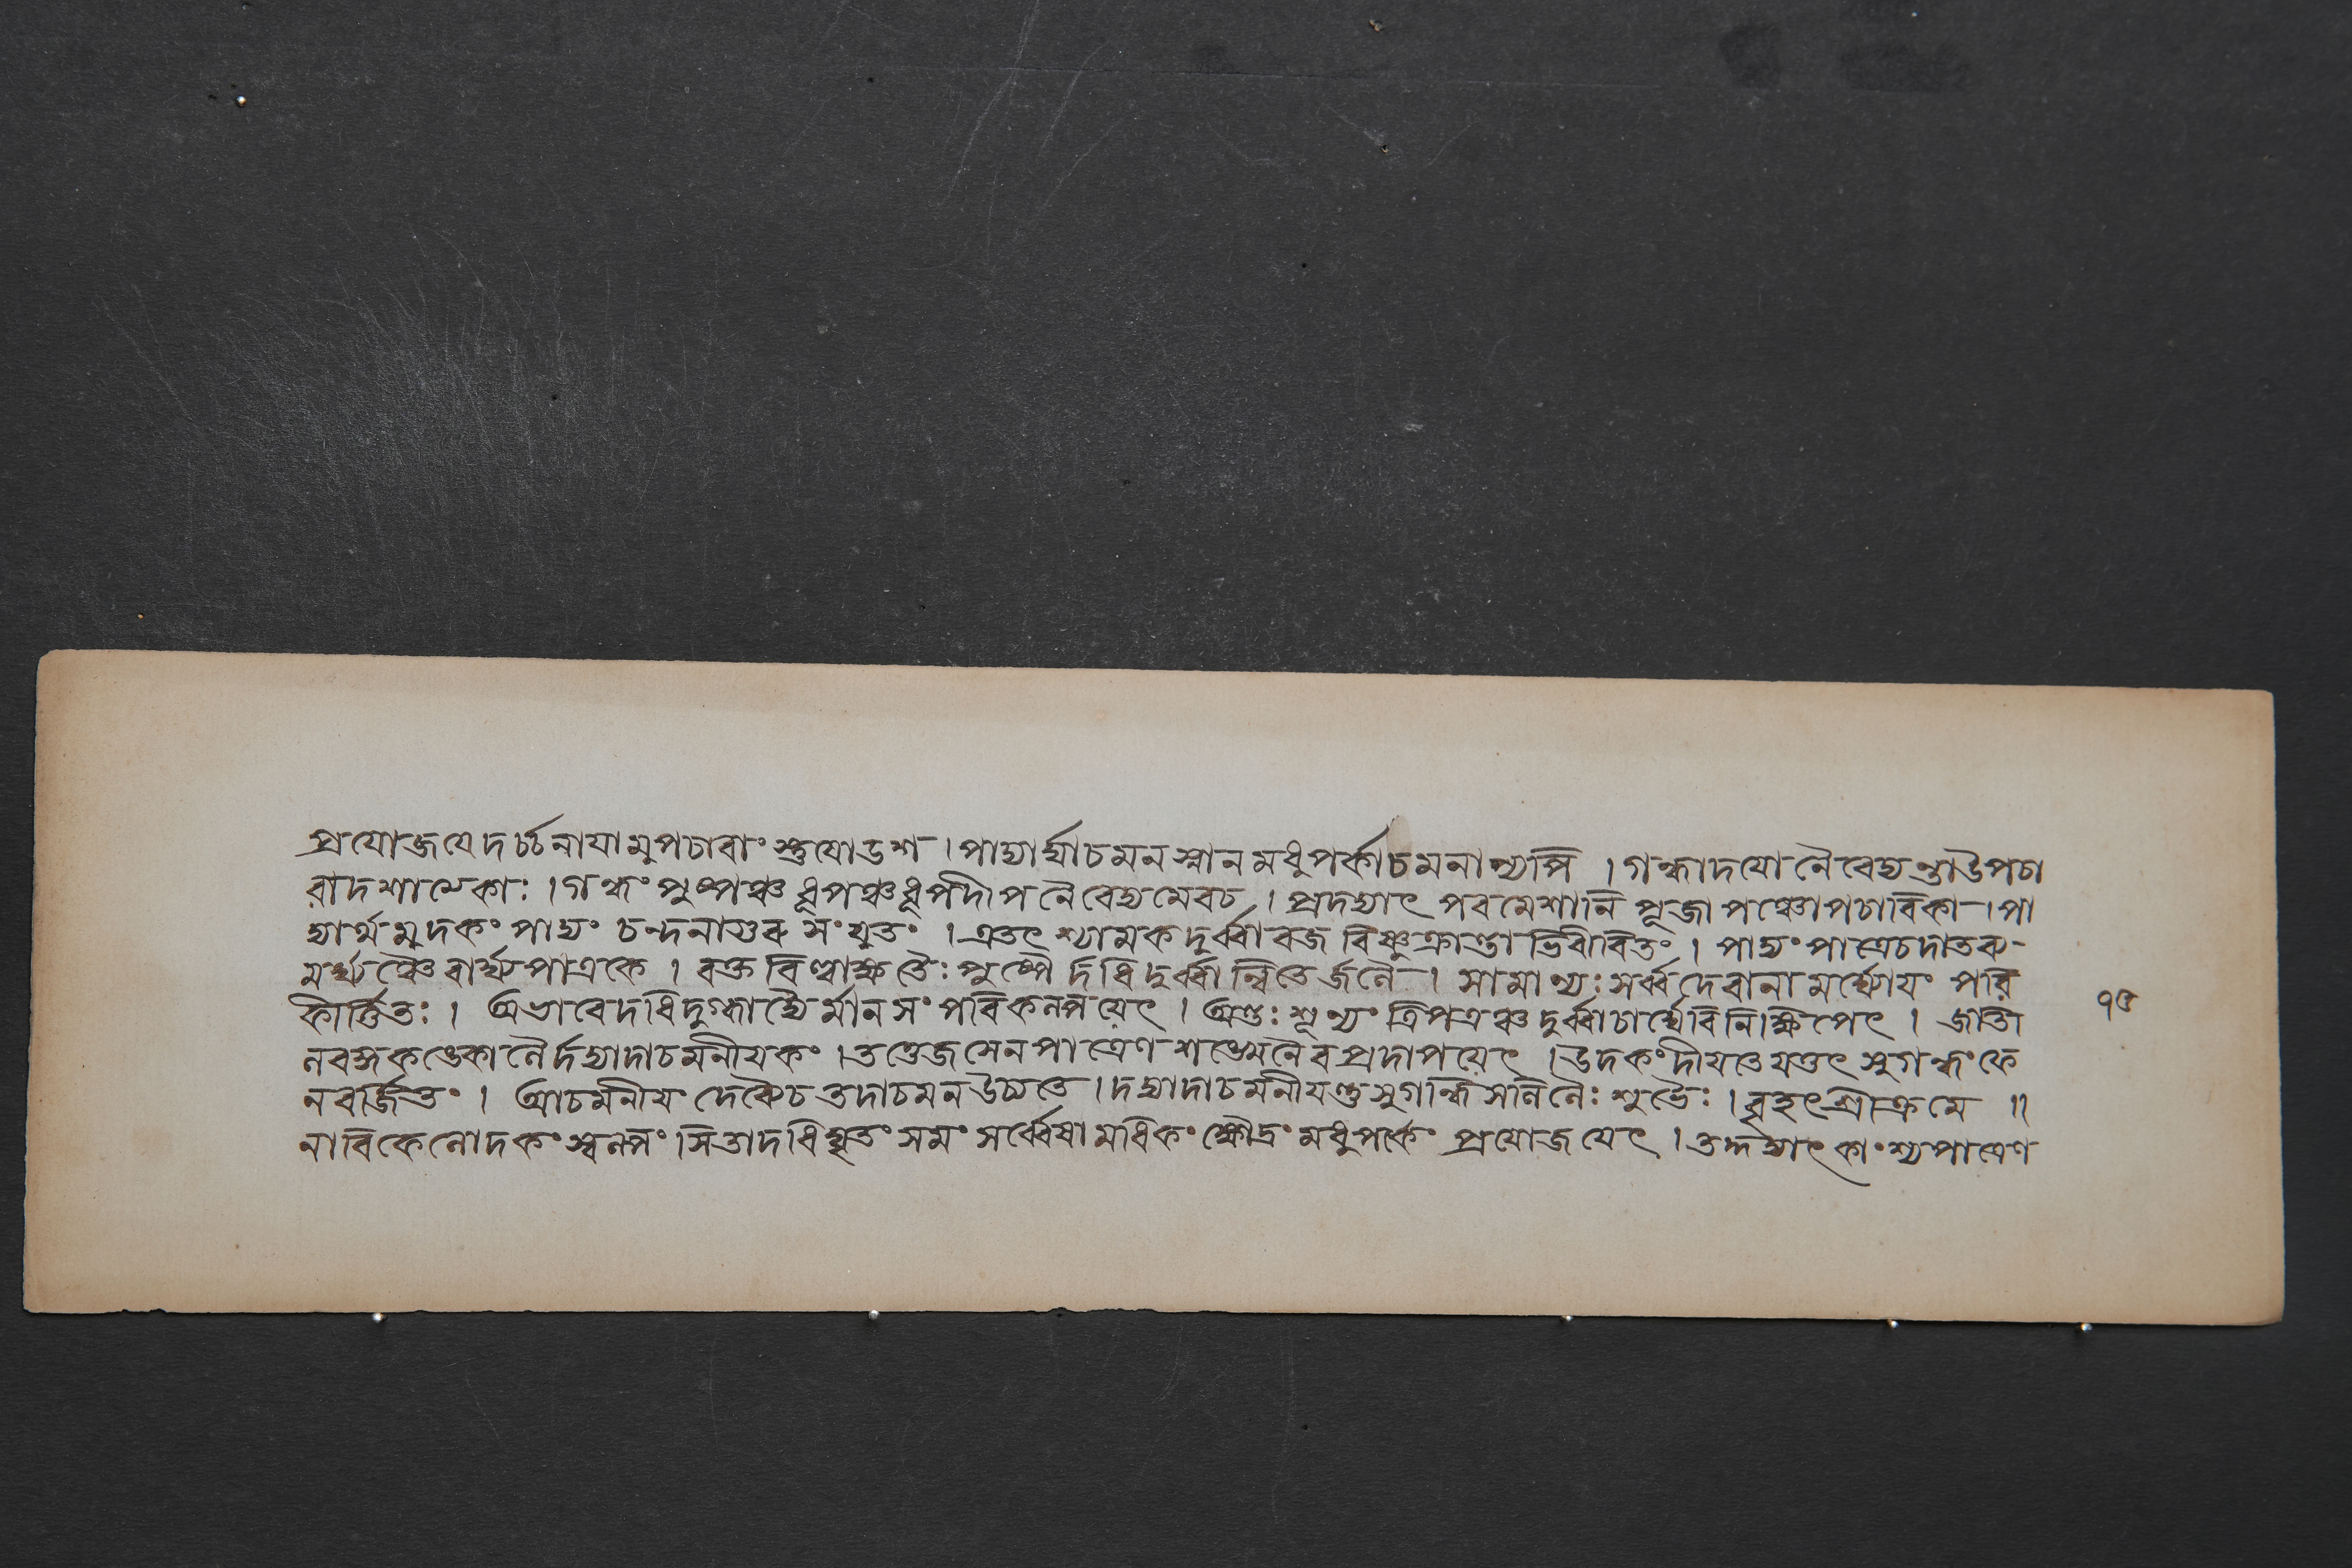 প্রযোজযেদর্চ্চনাযামুপচাবাংস্তুষোডশ । পাদ্যার্ঘ্যাচমনস্নানমধুপর্কাচমনান্যপি । গন্ধাদযো নৈবেদ্যন্তাউপচা
বাদশাঃ । গন্ধং পুষ্পঞ্চ ধূপঞ্চধূপদীপনৈবেদ্যমেবচ । প্রদদ্যাৎ পবমেশানি পূজা পঞ্চোপচাবিকা । পা
দ্যার্থমুদকং পাদ্যং চন্দনাগুরু সংযুতং । এতৎ শ্যামকদুর্ব্বাবজ বিষ্ণুক্রান্তাভিবীবিতং । পাদ্যং পাত্রেচদাতব্য
মর্ঘ্যঞ্চৈবার্ঘ্যপাত্রকে । বক্তবিল্বাক্ষতৈঃ পুষ্পৈর্দধিদুর্ব্বান্বিতৈর্জলৈ । সামান্যঃ সর্ব্বদেবানামর্ঘ্যোযং পরি
কীর্ত্তিতঃ । অভাবেদধিদুগ্ধাদ্যৈর্মানসং পবিকল্পয়েৎ । অন্তঃশূন্যং ত্রিপত্রঞ্চদুর্ব্বাচার্ঘ্যেবিনিক্ষিপেৎ । জাতী
লবঙ্গকঙ্কোলৈর্দদ্যাদাচমনীযকং । তত্তৈজসেনপাত্রেণ শঙ্খেনৈবপ্রদাপয়েৎ । উদকংদীযতে যত্তৎ সুগন্ধং ফে
নবর্জিতং । আচমনীয দেব্যৈচ তদাচমনউচ্যতে । দদ্যাদাচমনীযন্তুসুগন্ধিসলিলৈঃ শুভৈঃ । বৃহৎশ্রীক্রমে ॥
নাবিকেলোদকংস্বল্পং । সিতাদধিঘৃতং সমং সর্ব্বেষামধিকংক্ষৌদ্রং মধুপর্কং প্রযোজযেৎ । তদ্দদ্যাৎকাংশ্যপাত্রেণ
৭৫